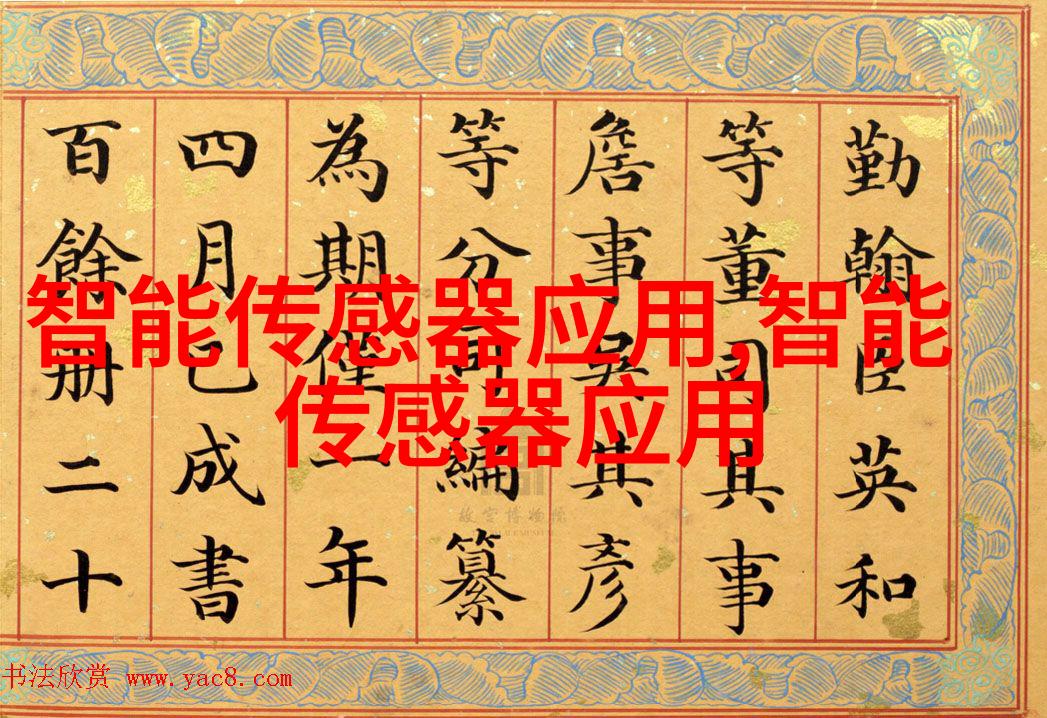 勤翰臣英和
等董司其事
詹事吳其彥
等分司編纂
為期僅一年
四月已成書
百餘册二十
智能传感器应用,智能
传感器应用
故宫博物院
书法欣赏 www.yac8.com